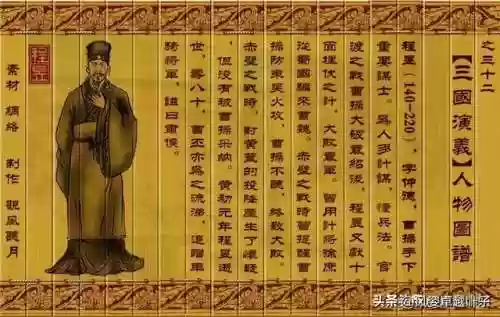 之三十二
【三國演義】人物圖譜
程昱(140-220),字仲德,曹操手下
重要謀士。為人多計謀,懂兵法。官
渡之戰曹操大破袁紹後,程昱又獻十
面埋伏之計,大敗袁軍。曾用計將徐庶
從劉備騙來曹魏。赤壁之戰時曾提醒曹
操防東吳火攻,曹操不聽,終致大敗。
赤壁之戰時,對黃蓋的投降產生了懷疑
,但沒有被曹操采納。黃初元年程昱逝
世,享八十,曹丕亦為之流涕,追贈車
騎將軍,謚曰肅侯。
素材 網絡 製作 觀風聽月
头条